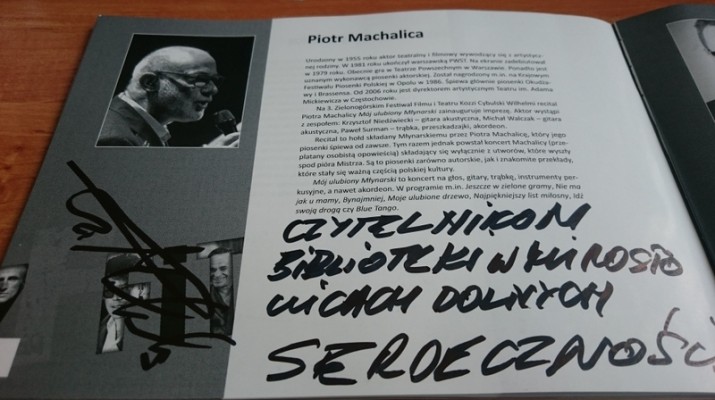 Piotr Machalica
Urodzony w 1955 roku aktor teatralny i filmowy wywodzący się z artystycz-
nej rodziny. W 1981 roku ukończył warszawską PWST. Na ekranie zadebiutował
w 1979 roku. Obecnie gra w Teatrze Powszechnym w Warszawie. Ponadto jest
uznanym wykonawcą piosenki aktorskiej. Został nagrodzony m.in. na Krajowym
Festiwalu Piosenki Polskiej w Opolu w 1986. Śpiewa głównie piosenki Okudża-
wy i Brassensa. Od 2006 roku jest dyrektorem artystycznym Teatru im. Adama
Mickiewicza w Częstochowie.
Na 3. Zielonogórskim Festiwalu Filmu i Teatru Kozzi Cybulski Wilhelmi recital
Piotra Machalicy Mój ulubiony Młynarski zainauguruje imprezę. Aktor wystąpi
z zespołem: Krzysztof Niedźwiecki – gitara akustyczna, Michał Walczak – gitara
akustyczna, Paweł Surman – trąbka, przeszkadzajki, akordeon.
Recital to hołd składany Młynarskiemu przez Piotra Machalicę, który jego
piosenki śpiewa od zawsze. Tym razem jednak powstał koncert Machalicy (prze-
platany osobistą opowieścią) składający się wyłącznie z utworów, które wyszły
spod pióra Mistrza. Są to piosenki zarówno autorskie, jak i znakomite przekłady,
które stały się ważną częścią polskiej kultury.
Mój ulubiony Młynarski to koncert na głos, gitary, trąbkę, instrumenty per-
kusyjne, a nawet akordeon. W programie m.in. Jeszcze w zielone gramy, Nie ma
jak u mamy, Bynajmniej, Moje ulubione drzewo, Najpiękniejszy list miłosny, Idź
swoją drogą czy Blue Tango.
CZYTELNIKOM
BIBLIOTEKI W MIROSŁA
WICACH DOLNYCH
SERDECZNOŚCI